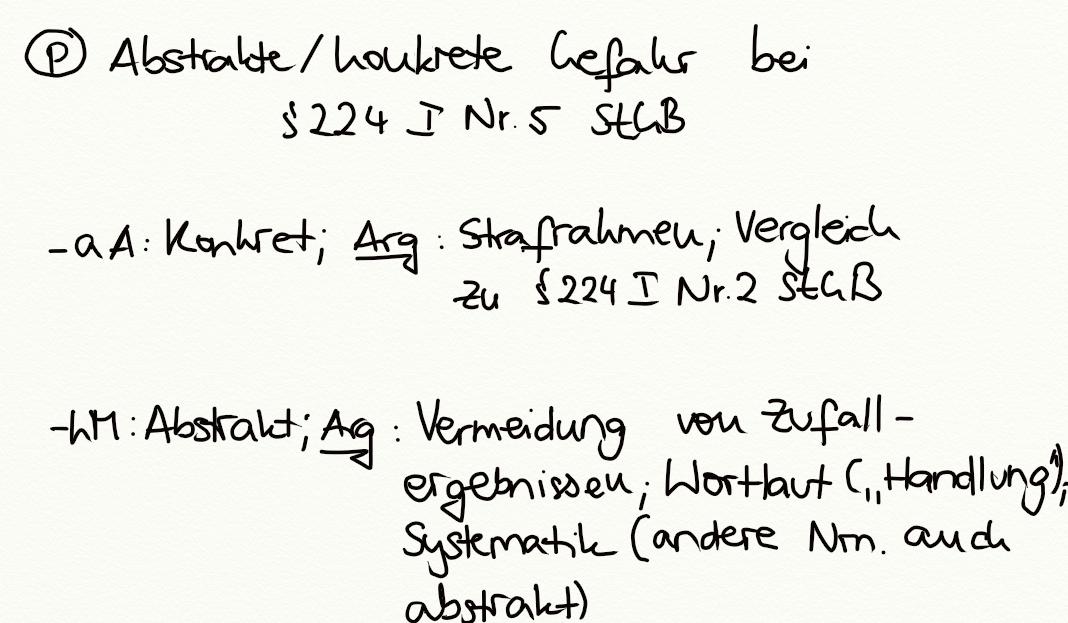 Ⓟ Abstrakte/konkrete Gefahr bei
§ 224 I Nr. 5 StGB
- aA: Konkret; Arg: Strafrahmen; Vergleich
zu § 224 I Nr. 2 StGB
- hM: Abstrakt; Arg: Vermeidung von Zufall-
ergebnissen; Wortlaut („Handlung");
Systematik (andere Nrn. auch
abstrakt)